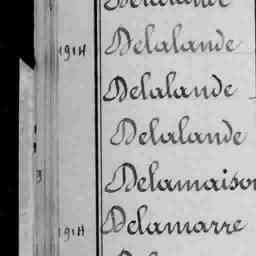 Delalande
1914 Delalande
Delalande
Delalande
3 Delamaison
1914 Delamarre